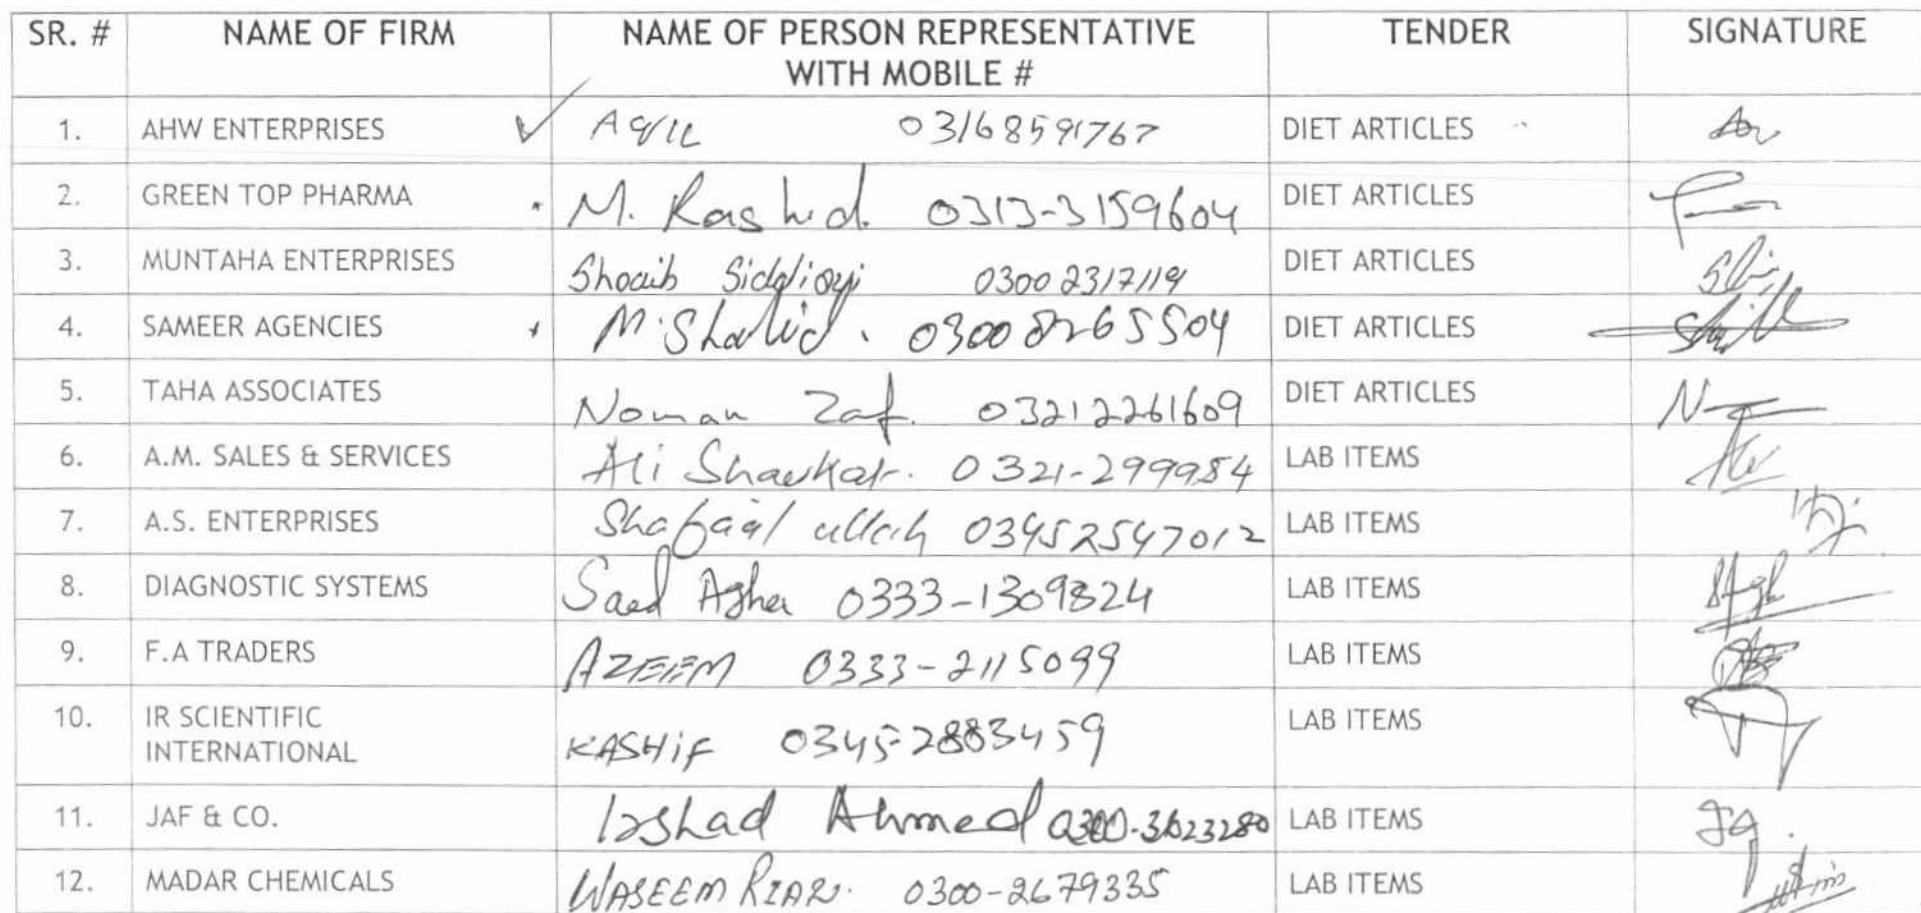 SR. # NAME OF FIRM NAME OF PERSON REPRESENTATIVE TENDER SIGNATURE
WITH MOBILE #
1. AHW ENTERPRISES Aqil 03168591767 DIET ARTICLES
2. GREEN TOP PHARMA M. Rashid. 0313-3159604 DIET ARTICLES
3. MUNTAHA ENTERPRISES Shoaib Siddiqui 03002317119 DIET ARTICLES
4. SAMEER AGENCIES M. Shahid. 03008265504 DIET ARTICLES
5. TAHA ASSOCIATES Noman Zaf. 03212261609 DIET ARTICLES
6. A.M. SALES & SERVICES Ali Shaukat. 0321-299984 LAB ITEMS
7. A.S. ENTERPRISES ullah 03452547012 LAB ITEMS
8. DIAGNOSTIC SYSTEMS Saed 0333-1309824 LAB ITEMS
9. F.A TRADERS AZEEM 0333-2115099 LAB ITEMS
10. IR SCIENTIFIC KASHIF 0345-2883459 LAB ITEMS
INTERNATIONAL
11. JAF & CO. Irshad Ahmed 0300-3623280 LAB ITEMS
12. MADAR CHEMICALS WASEEM 0300-2679335 LAB ITEMS